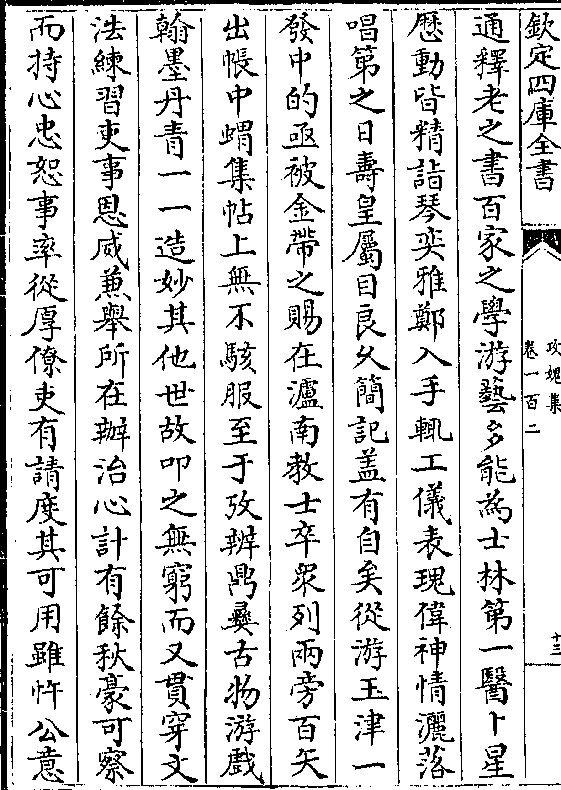 欽定四庫全書
攻媿集
卷一百二
十三
通釋老之書百家之學游藝多能為士林第一醫卜星
厯動皆精詣琴奕雅鄭入手輒工儀表瑰偉神情灑落
唱第之日壽皇屬目良乆簡記盖有自矣從游玉津一
發中的亟被金帶之賜在瀘南教士卒衆列兩旁百矢
出帳中蝟集帖上無不駭服至于攷辦鼎彞古物游戲
翰墨丹青一一造妙其他世故叩之無窮而又貫穿文
法練習吏事恩威兼舉所在辦治心計有餘秋豪可察
而持心忠恕事率從厚僚吏有請度其可用雖忤公意